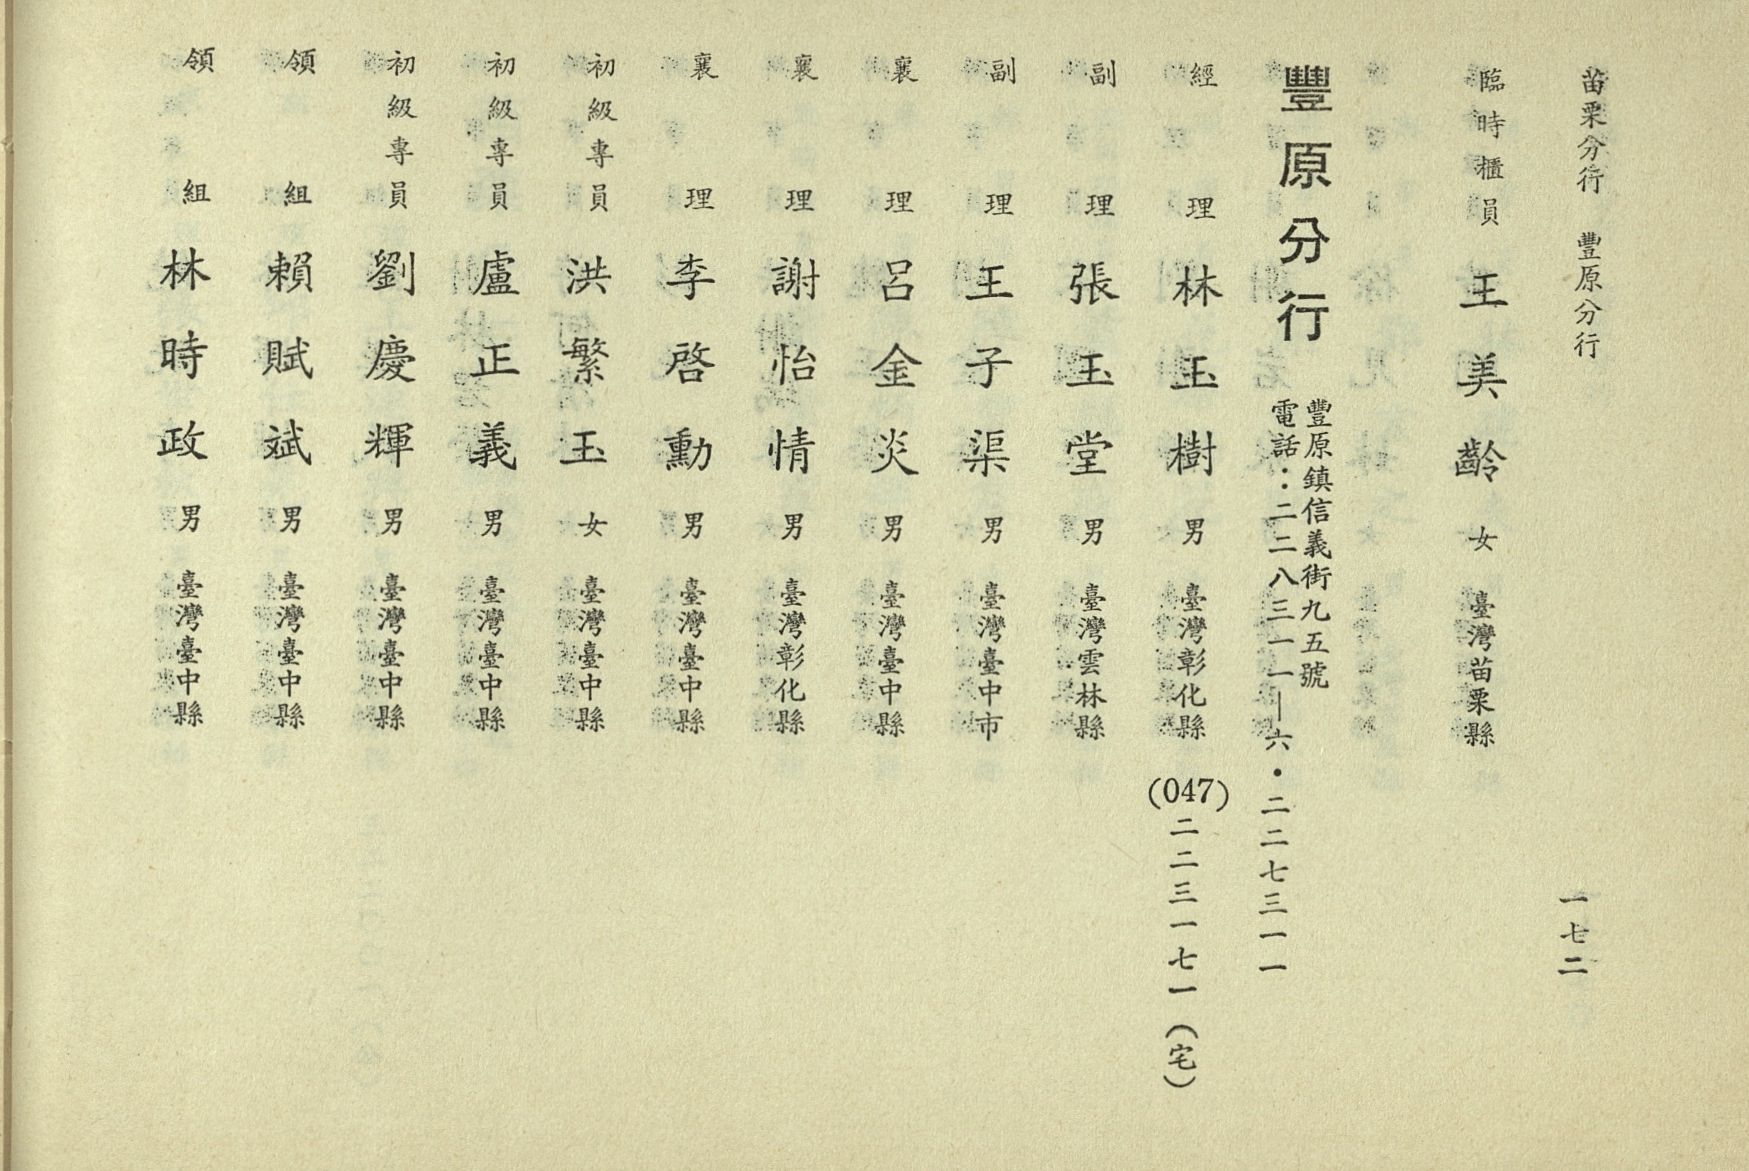 苗栗分行　豐原分行　一七二
臨時櫃員　王美齡　女　臺灣苗栗縣
豐原分行
豐原鎮信義街九五號
電話：二二八三一一—六・二二七三一一
經理　林玉樹　男　臺灣彰化縣　(047)二二三一七一（宅）
副理　張玉堂　男　臺灣雲林縣
副理　王子渠　男　臺灣臺中市
襄理　呂金炎　男　臺灣臺中縣
襄理　謝怡情　男　臺灣彰化縣
襄理　李啓勳　男　臺灣臺中縣
初級專員　洪繁玉　女　臺灣臺中縣
初級專員　盧正義　男　臺灣臺中縣
初級專員　劉慶輝　男　臺灣臺中縣
領組　賴賦斌　男　臺灣臺中縣
領組　林時政　男　臺灣臺中縣